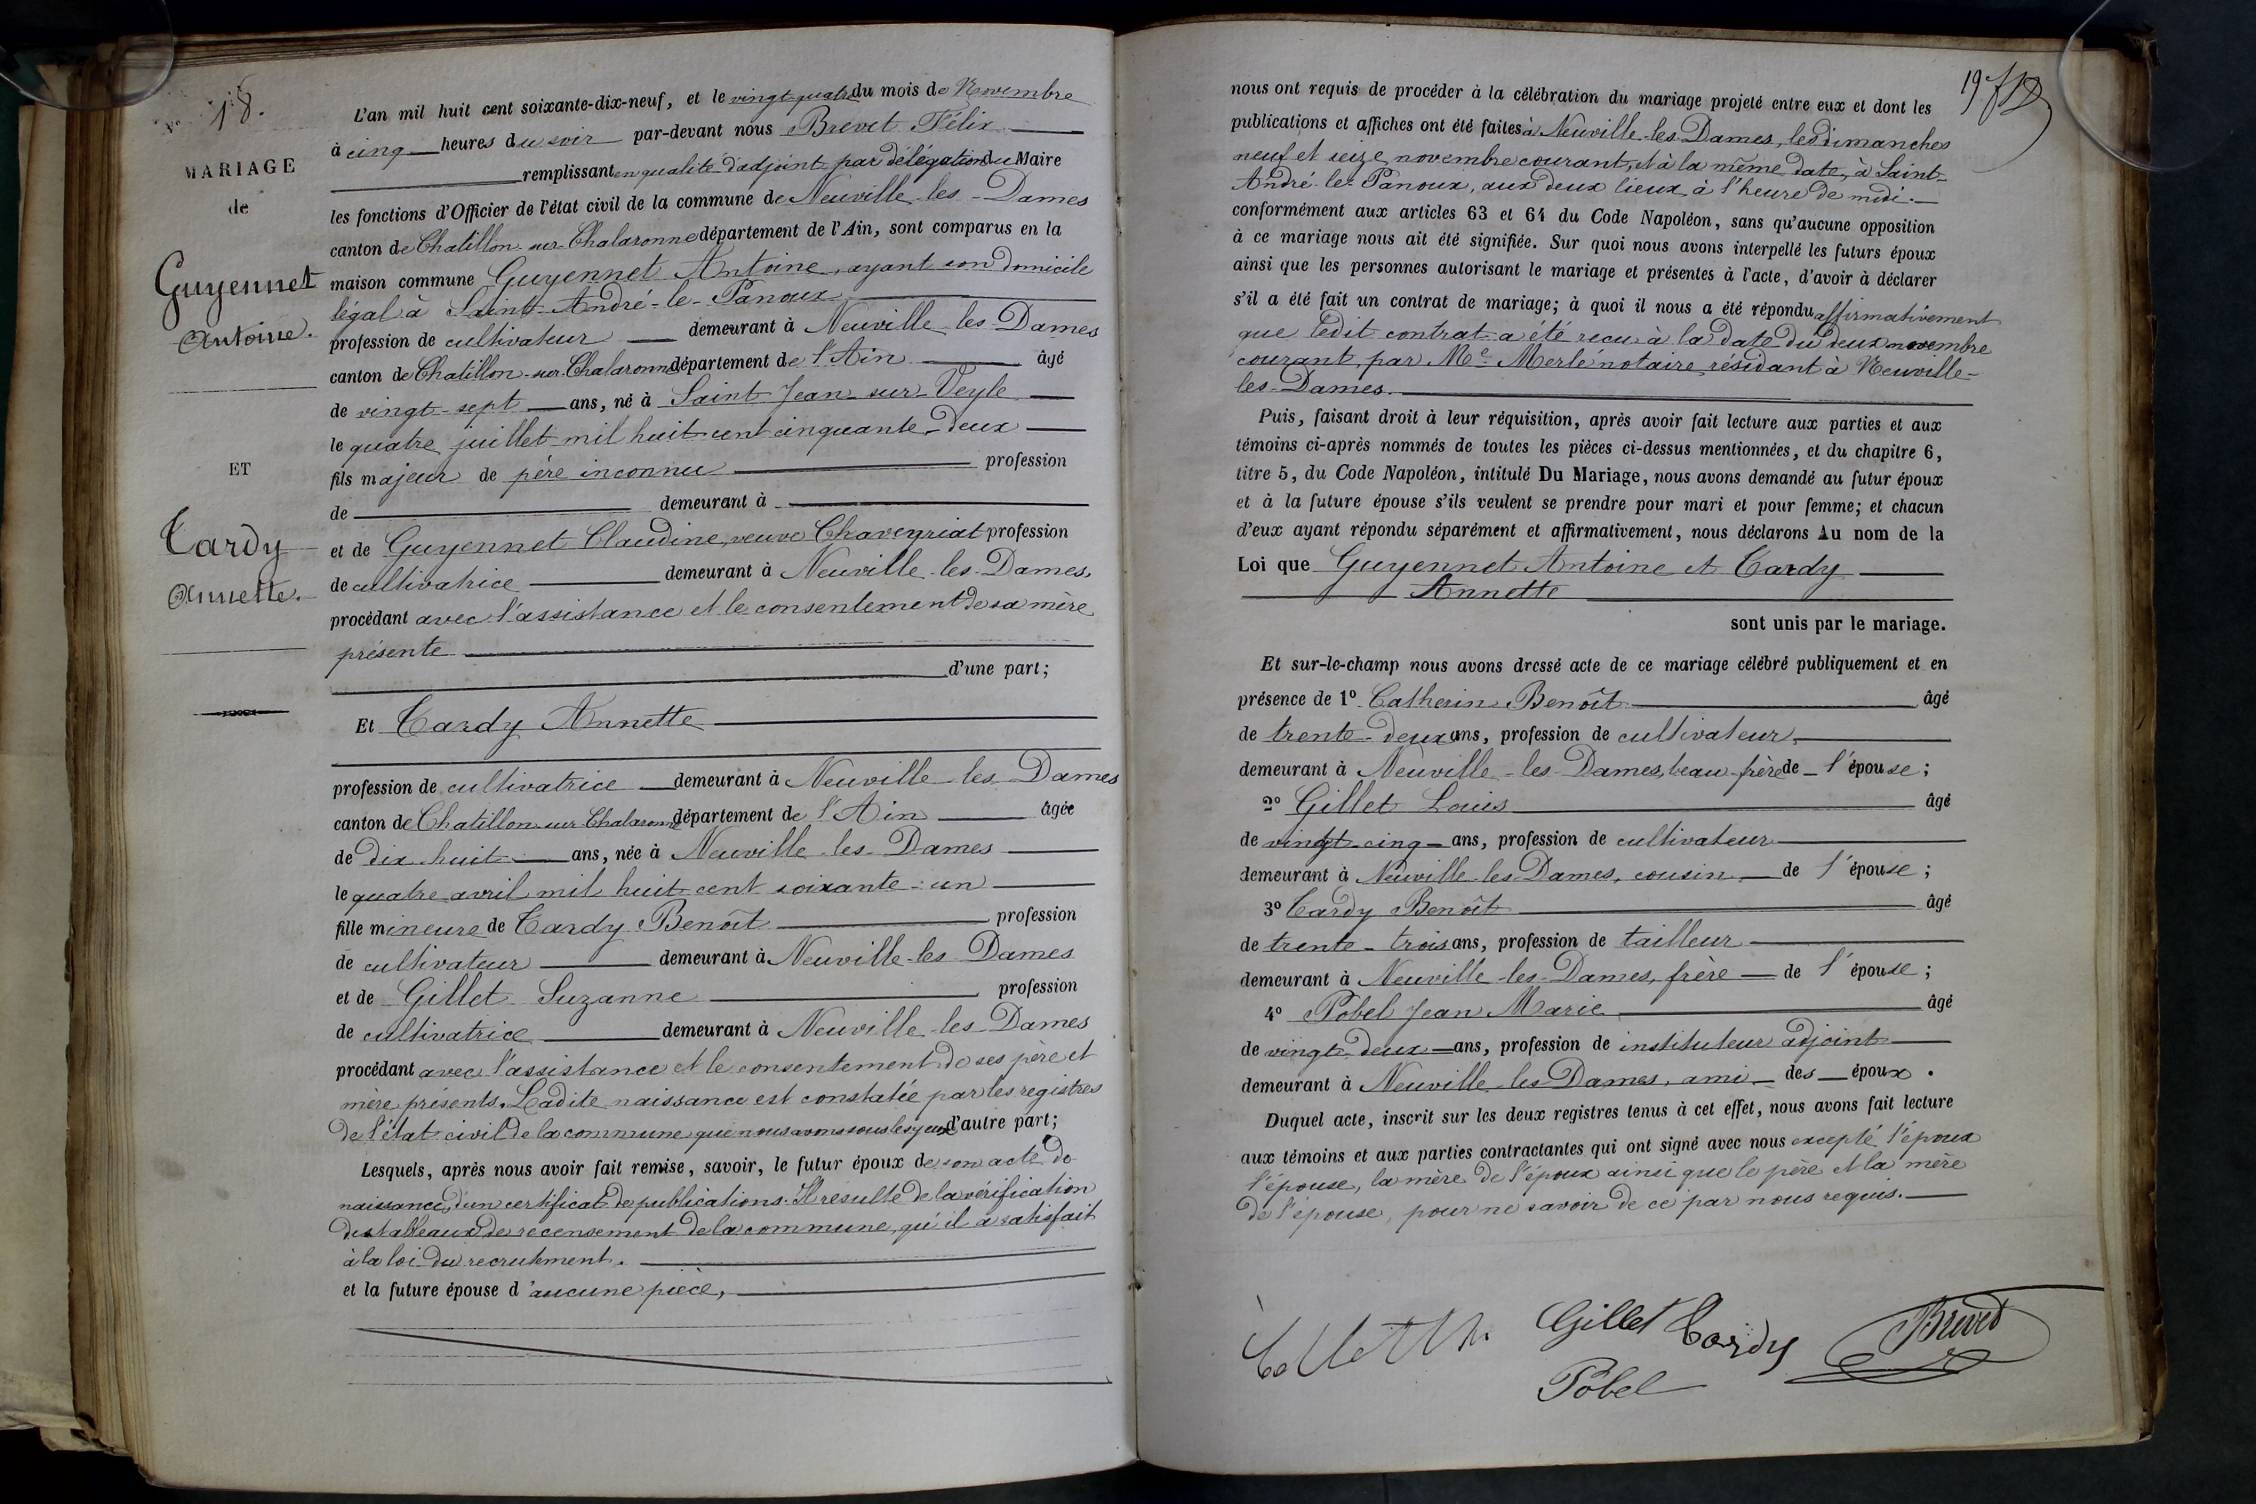 N° 18.
MARIAGE
de
Guyennet
Antoine.
ET
Tardy
Annette.
L'an mil huit cent soixante-dix-neuf, et le vingt-quatre du mois de Novembre
à cinq heures du soir par-devant nous Brevet Félix
remplissant en qualité d'adjoint par délégation du Maire
les fonctions d'Officier de l'état civil de la commune de Neuville-les-Dames
canton de Chatillon-sur-Chalaronne département de l'Ain, sont comparus en la
maison commune Guyennet Antoine, ayant son domicile
légal à Saint-André-le-Panoux
profession de cultivateur demeurant à Neuville-les-Dames
canton de Chatillon-sur-Chalaronne département de l'Ain âgé
de vingt-sept ans, né à Saint Jean sur Veyle
le quatre juillet mil huit cent cinquante-deux
fils majeur de père inconnu profession
de demeurant à
et de Guyennet Claudine, veuve Chaveyriat profession
de cultivatrice demeurant à Neuville-les-Dames,
procédant avec l'assistance et le consentement de sa mère
présente
d'une part;
Et Tardy Annette
profession de cultivatrice demeurant à Neuville-les-Dames
canton de Chatillon-sur-Chalaronne département de l'Ain âgée
de dix-huit ans, née à Neuville-les-Dames
le quatre avril mil huit cent soixante-un
fille mineure de Tardy Benoît profession
de cultivateur demeurant à Neuville-les-Dames
et de Gillet Suzanne profession
de cultivatrice demeurant à Neuville-les-Dames
procédant avec l'assistance et le consentement de ses père et
mère présents. Ladite naissance est constatée par les registres
de l'état civil de la commune que nous avons sous les yeux d'autre part;
Lesquels, après nous avoir fait remise, savoir, le futur époux de son acte de
naissance, d'un certificat de publications. Il résulte de la vérification
des tableaux de recensement de la commune, qu'il a satisfait
à la loi du recrutement.
et la future épouse d'aucune pièce,
19
nous ont requis de procéder à la célébration du mariage projeté entre eux et dont les
publications et affiches ont été faites à Neuville-les-Dames, les dimanches
neuf et seize novembre courant, et à la même date, à Saint-
André-le-Panoux, aux deux lieux à l'heure de midi.
conformément aux articles 63 et 64 du Code Napoléon, sans qu'aucune opposition
à ce mariage nous ait été signifiée. Sur quoi nous avons interpellé les futurs époux
ainsi que les personnes autorisant le mariage et présentes à l'acte, d'avoir à déclarer
s'il a été fait un contrat de mariage; à quoi il nous a été répondu affirmativement
que ledit contrat a été reçu à la date du deux novembre
courant, par Me Merle notaire, résidant à Neuville-
les-Dames.
Puis, faisant droit à leur réquisition, après avoir fait lecture aux parties et aux
témoins ci-après nommés de toutes les pièces ci-dessus mentionnées, et du chapitre 6,
titre 5, du Code Napoléon, intitulé Du Mariage, nous avons demandé au futur époux
et à la future épouse s'ils veulent se prendre pour mari et pour femme; et chacun
d'eux ayant répondu séparément et affirmativement, nous déclarons Au nom de la
Loi que Guyennet Antoine et Tardy
Annette
sont unis par le mariage.
Et sur-le-champ nous avons dressé acte de ce mariage célébré publiquement et en
présence de 1° Catherin Benoît âgé
de trente-deux ans, profession de cultivateur,
demeurant à Neuville-les-Dames, beau-frère de l'épouse;
2° Gillet Louis âgé
de vingt-cinq ans, profession de cultivateur
demeurant à Neuville-les-Dames, cousin de l'épouse;
3° Tardy Benoît âgé
de trente-trois ans, profession de tailleur
demeurant à Neuville-les-Dames, frère de l'épouse;
4° Pobel Jean Marie âgé
de vingt-deux ans, profession de instituteur adjoint
demeurant à Neuville-les-Dames, ami des époux.
Duquel acte, inscrit sur les deux registres tenus à cet effet, nous avons fait lecture
aux témoins et aux parties contractantes qui ont signé avec nous excepté l'époux
l'épouse, la mère de l'époux ainsi que le père et la mère
de l'épouse, pour ne savoir de ce par nous requis.
Gillet Tardy Brevet
Pobel